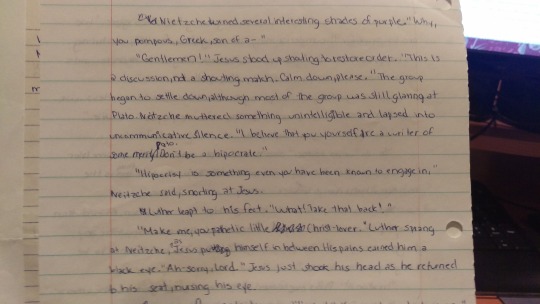 Nietzche turned several interesting shades of purple. "Why,
you pompous, Greek, son of a-"
"Gentlemen!" Jesus stood up shouting to restore order. "This is
a discussion, not a shouting match. Calm down, please." The group
began to settle down, although most of the group was still glaring at
Plato. Nietzche muttered something unintelligible and lapsed into
uncommunicative silence. "I believe that you yourself are a writer of
some merit, Plato. Don't be a hipocrate."
"Hipocrisy is something even you have been known to engage in,"
Neitzche said, snorting at Jesus.
Luther leapt to his feet. "What! Take that back!"
"Make me, you pathetic little Christ-lover." Luther sprang
at Neitzche, Jesus putting himself in between. His pains earned him a
black eye. "Ah sorry, Lord." Jesus just shook his head as he returned
to his seat, nursing his eye.